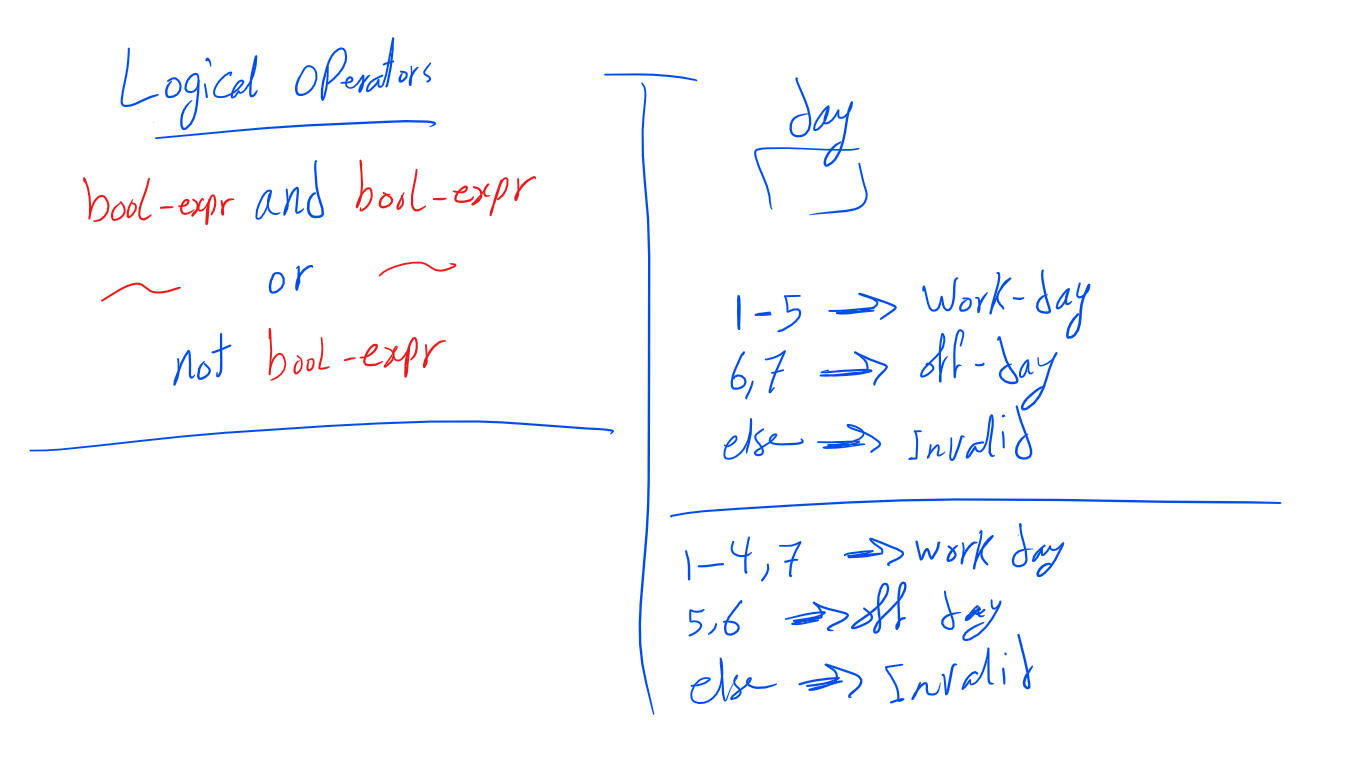 Logical Operators
bool-expr and bool-expr
or
not bool-expr
day
1-5 => Work-day
6,7 => off-day
else => Invalid
1-4,7 => work day
5,6 => off day
else => Invalid